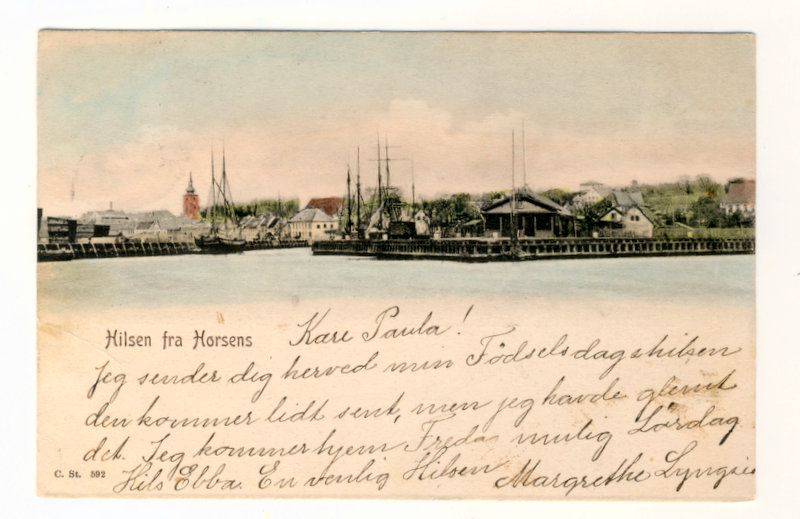 Hilsen fra Horsens
Kære Paula!
Jeg sender dig herved min Födselsdagshilsen
den kommer lidt sent, men jeg havde glemt
det. Jeg kommer hjem Freda mulig Lördag
Hils Ebba. En venlig Hilsen Margrethe
C. St. 592